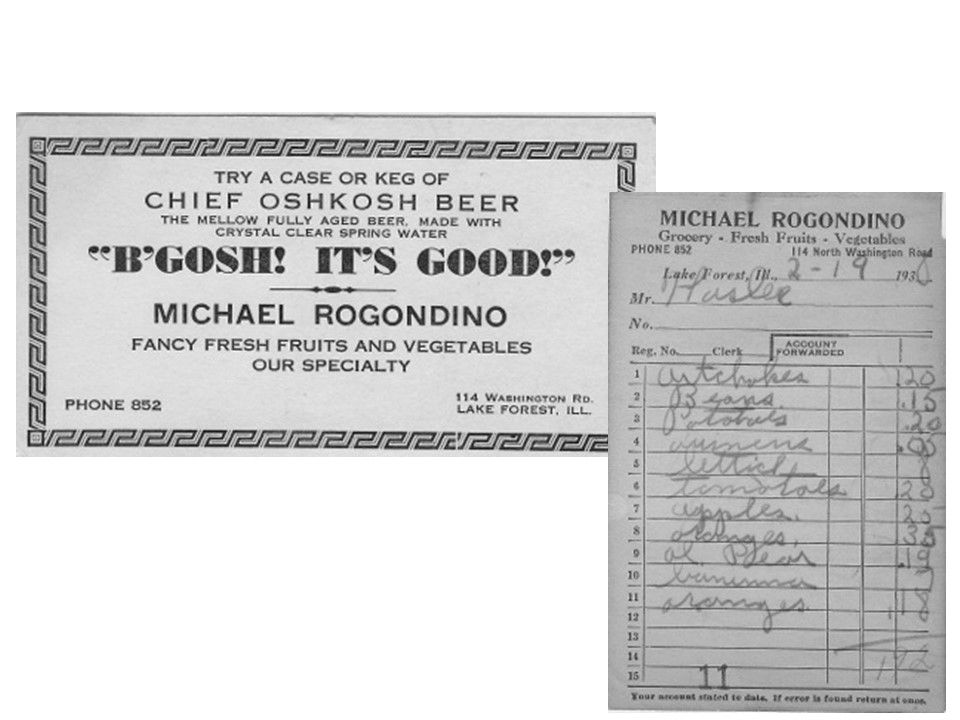 TRY A CASE OR KEG OF
CHIEF OSHKOSH BEER
THE MELLOW FULLY AGED BEER, MADE WITH
CRYSTAL CLEAR SPRING WATER
"B'GOSH! IT'S GOOD!"
MICHAEL ROGONDINO
FANCY FRESH FRUITS AND VEGETABLES
OUR SPECIALTY
PHONE 852
114 WASHINGTON RD.
LAKE FOREST, ILL.
MICHAEL ROGONDINO
Grocery - Fresh Fruits - Vegetables
PHONE 852 114 North Washington Road
Lake Forest, Ill., 2-19 193
Mr.
No.
Reg. No. Clerk ACCOUNT FORWARDED
1 artchokes .20
2 Beans .15
3 .20
4
5
6 tomotoes 20
7 apples.
8 oranges, 35
9 al. Pear .19
10
11 oranges .18
12
13
14 192
15 11
Your account stated to date. If error is found return at once.